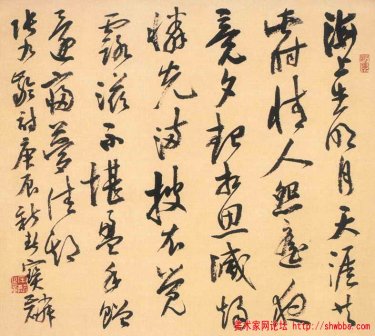 海上生明月天涯共
此时情人怨遥夜
竟夕起相思灭烛
怜光满披衣觉
露滋不堪盈手赠
还寝梦佳期
张九龄诗庚辰新春宝麟
美术家网论坛
http://shwbbs.com